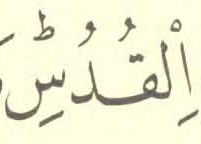 اِلْقُدُسِؕ